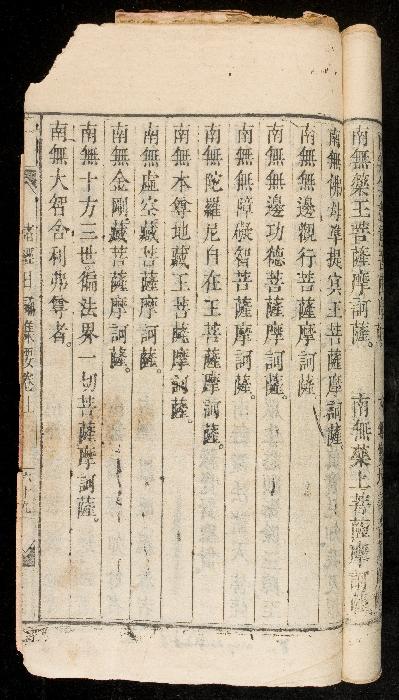 南無藥王菩薩摩訶薩。 南無藥上菩薩摩訶薩
南無佛母準提㝠王菩薩摩訶薩。
南無無邊觀行菩薩摩訶薩。
南無無邊功德菩薩摩訶薩。
南無無障礙智菩薩摩訶薩。
南無陀羅尼自在王菩薩摩訶薩。
南無本尊地藏王菩薩摩訶薩。
南無虛空藏菩薩摩訶薩。
南無金剛藏菩薩摩訶薩。
南無十方三世徧法界一切菩薩摩訶薩。
南無大智舍利弗尊者。
經日誦集要卷上 六十九